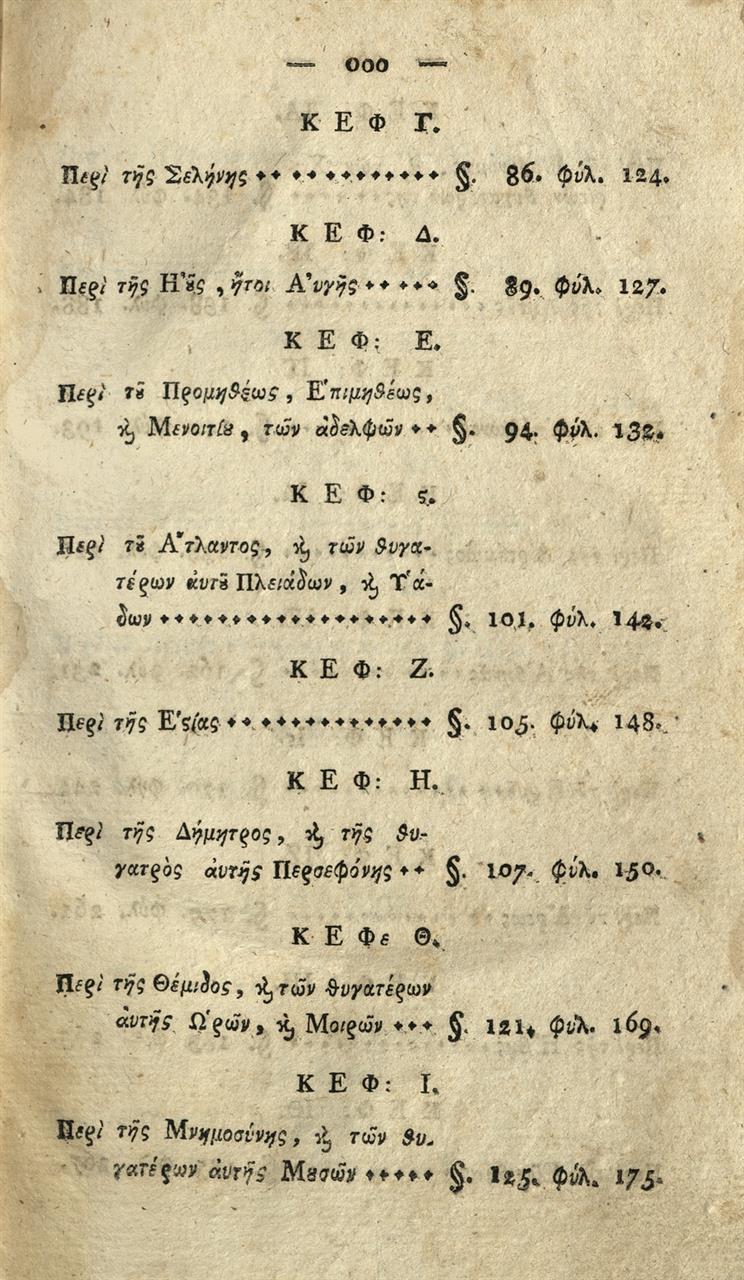 — 000 —
Κ Ε Φ Γ.
Περὶ τῆς Σελήνης ✦✦ ✦✦ ✦✦✦✦✦✦✦✦ §. 86. Φύλ. 124.
Κ Ε Φ: Δ.
Περὶ τῆς Η᾿ȣ͂ς, ἤτοι Α᾿υγῆς ✦✦ ✦✦✦ §. 89. Φύλ. 127.
Κ Ε Φ: Ε.
Περὶ τȣ͂ Προμηθέως, Ε᾿πιμηθέως,
ϗ Μενοιτίȣ, τῶν ἀδελφῶν ✦✦ §. 94. Φύλ. 132.
Κ Ε Φ: ϛ.
Περὶ τȣ͂ Α῎τλαντος, ϗ τῶν θυγα-
τέρων ἀυτȣ͂ Πλειάδων, ϗ Υ῾ά-
δων ✦✦✦✦✦✦✦✦✦✦✦✦✦✦✦✦✦✦✦ §. 101. Φύλ. 142.
Κ Ε Φ: Ζ.
Περὶ τῆς Ε῾ϛίας ✦✦ ✦✦✦✦✦✦✦✦✦✦✦✦ §. 105. Φύλ. 148.
Κ Ε Φ: Η.
Περὶ τῆς Δήμητρος, ϗ τῆς θυ-
γατρὸς ἀυτῆς Περσεφόνης ✦✦ §. 107. Φύλ. 150.
Κ Ε Φε Θ.
Περὶ τῆς Θέμιδος, ϗ τῶν θυγατέρων
ἀυτῆς Ω῾ρῶν, ϗ Μοιρῶν ✦✦✦ §. 121. Φύλ. 169.
Κ Ε Φ: Ι.
Περὶ τῆς Μνημοσύνης, ϗ τῶν θυ-
γατέρων ἀυτῆς Μȣσῶν ✦✦✦✦✦ §. 125. Φύλ. 175.